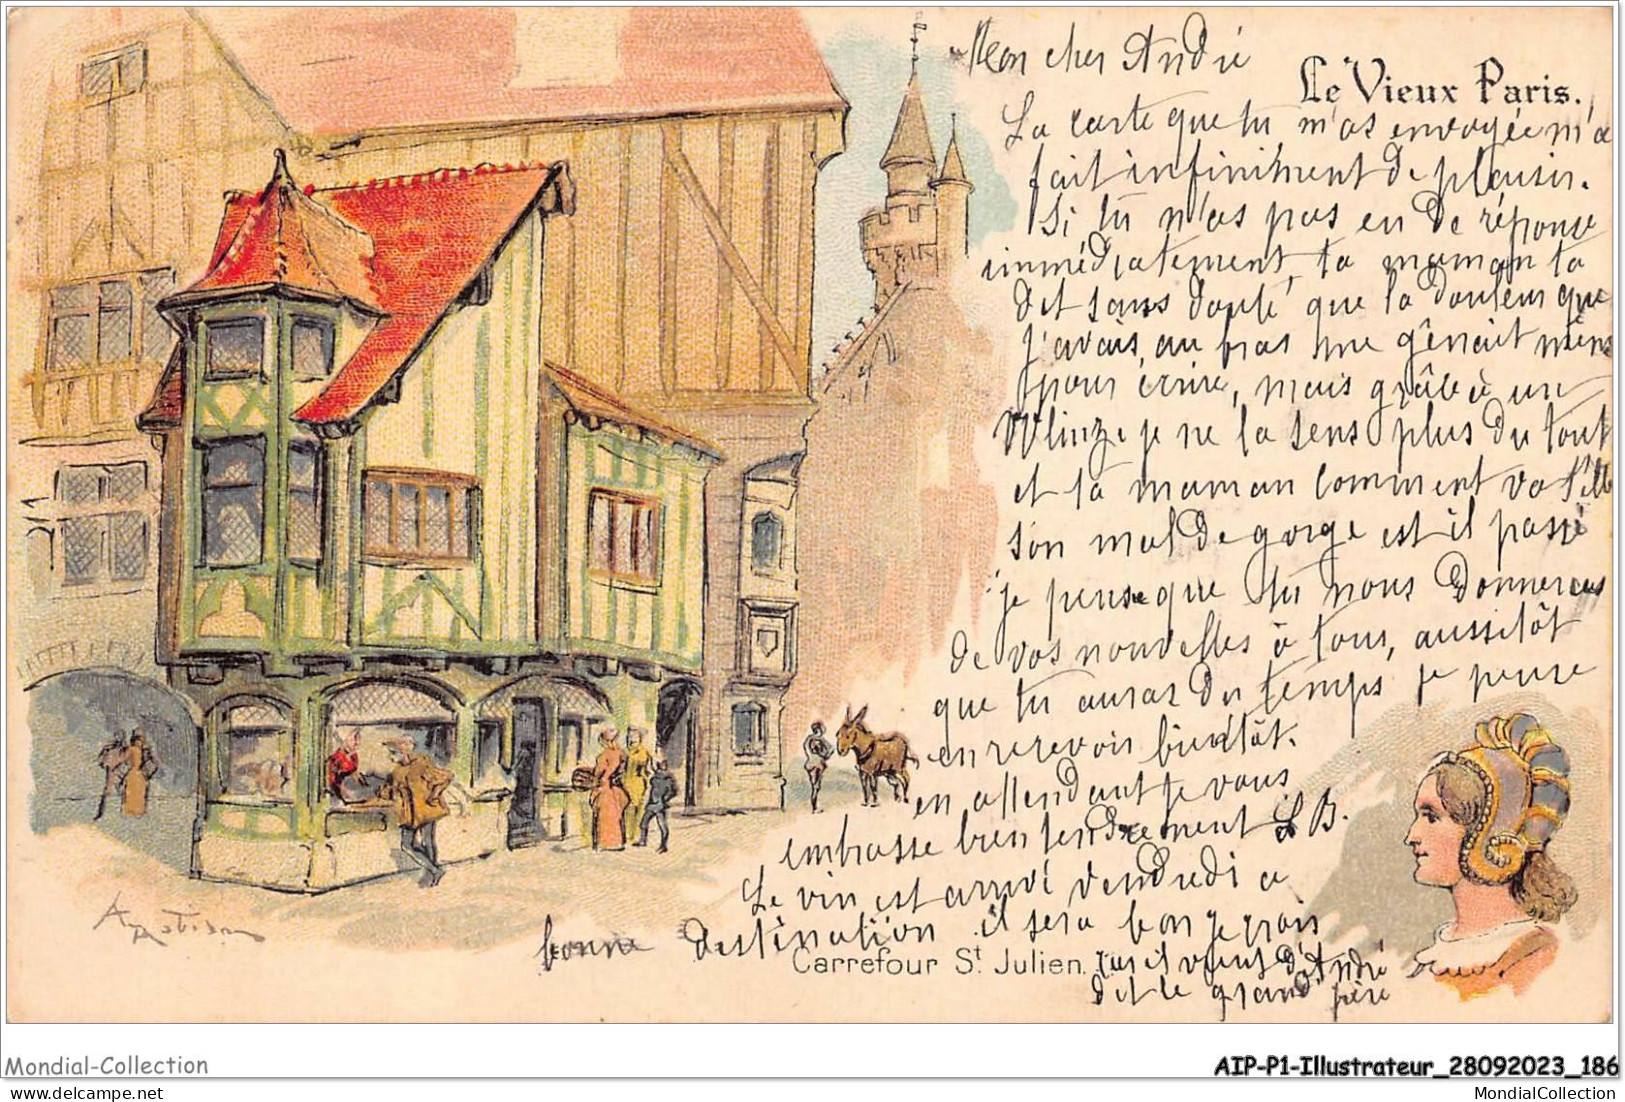 Mon cher André
Le Vieux Paris.
La carte que tu m'as envoyée m'a
fait infiniment de plaisir.
Si tu n'as pas eu de réponse
immédiatement, ta maman t'a
dit sans doute que la douleur que
j'avais, au bras me gênait même
pour écrire, mais grâce à un
je ne la sens plus du tout
et ta maman comment va t'elle
son mal de gorge est il passé
je pense que tu nous donneras
de vos nouvelles à tous, aussitôt
que tu auras du temps je pense
en recevoir bientôt.
en attendant je vous
embrasse bien tendrement B.
Le vin est arrivé vendredi a
bonne destination il sera bon je crois
Carrefour St Julien.
car il vient d'André
dit le grand père
A. Robida
Mondial-Collection
AIP-P1-Illustrateur_28092023_186
delcampe.net
MondialCollection